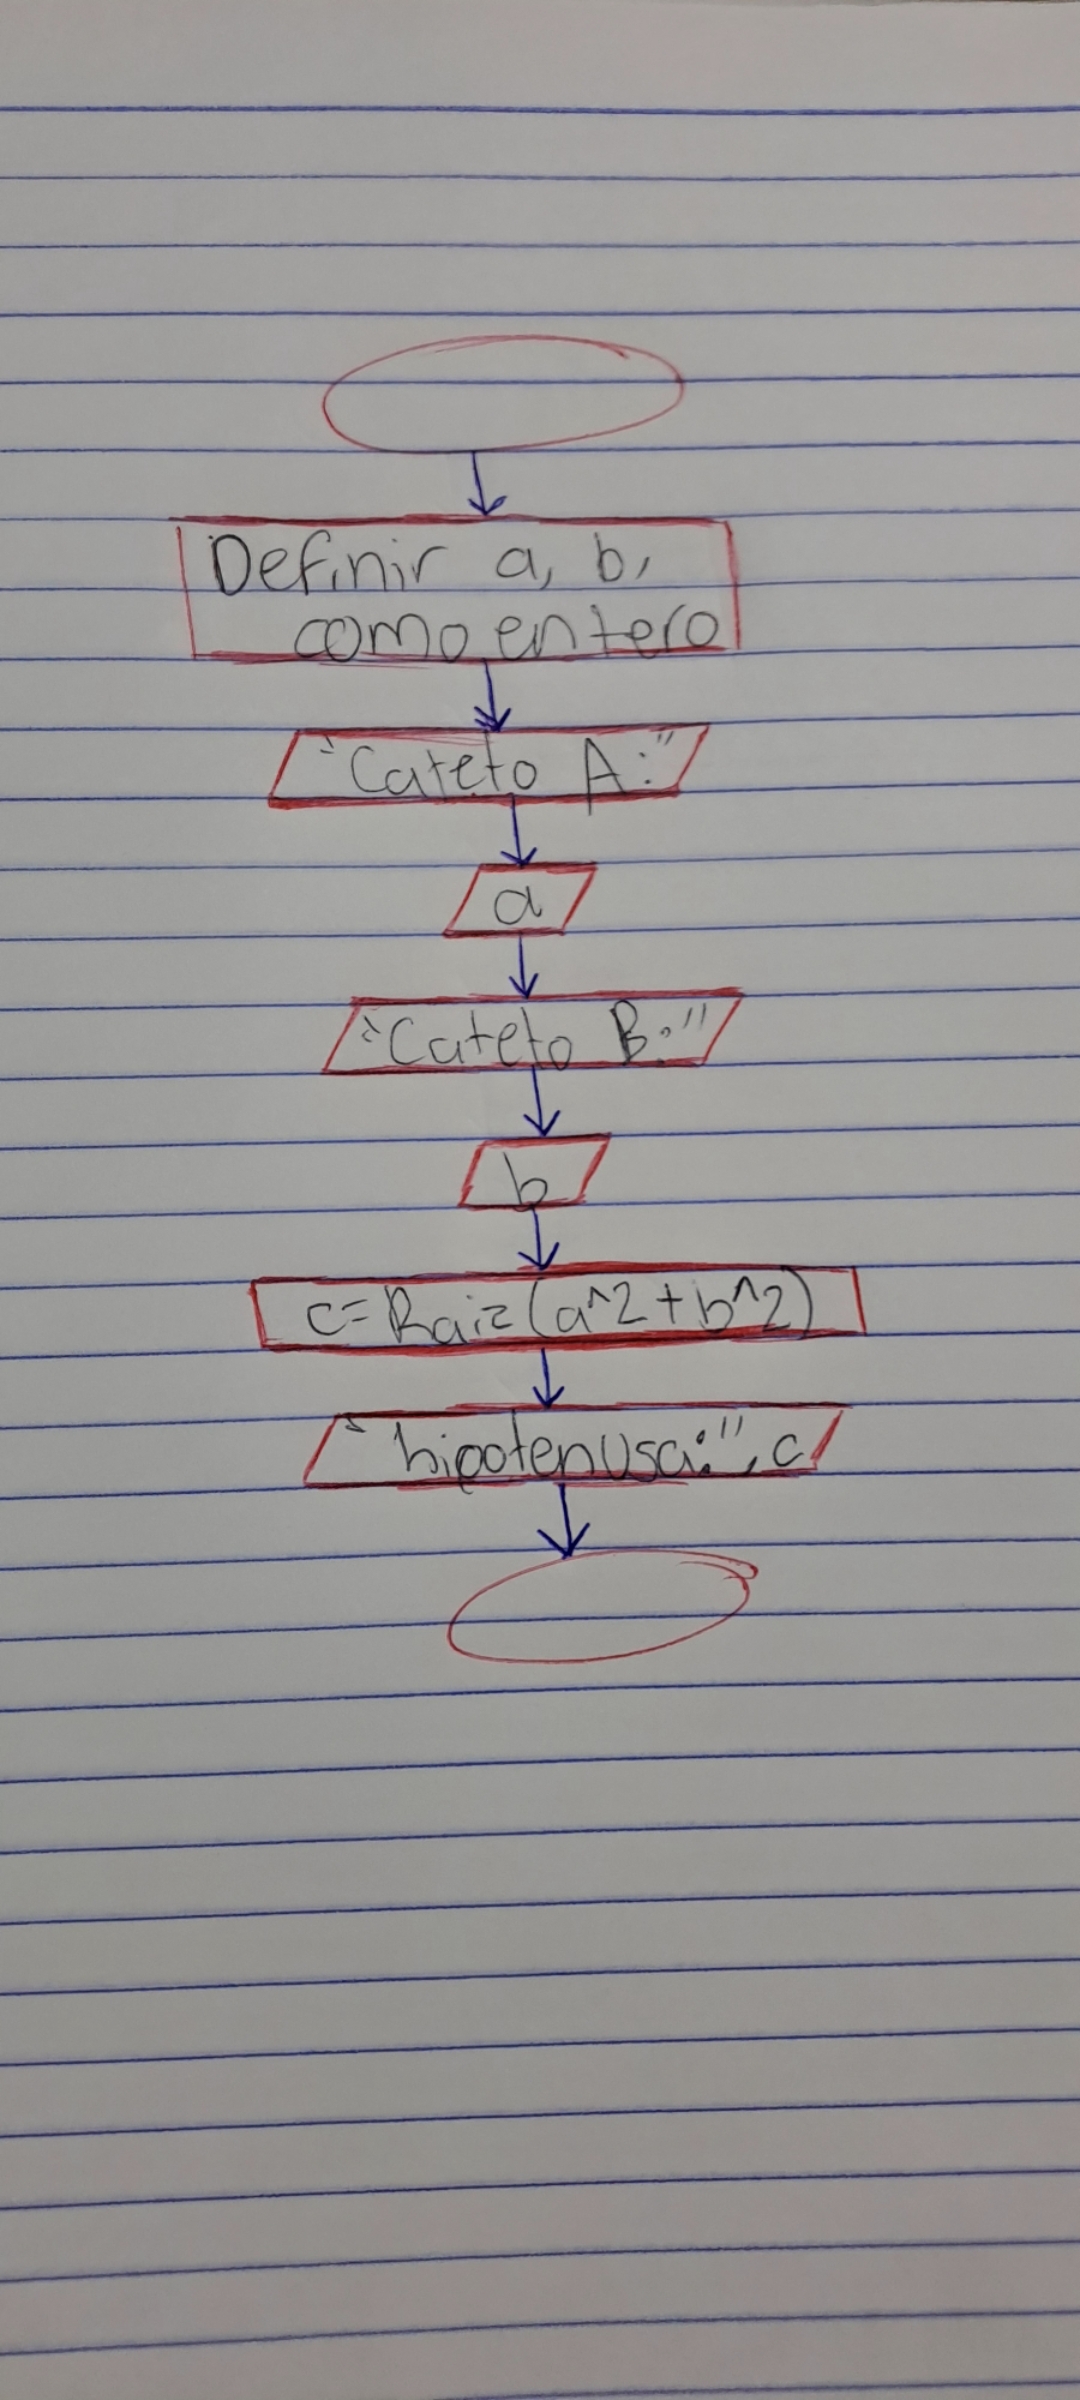 Definir a, b,
como entero
"Cateto A:"
a
"Cateto B:"
b
c=Raiz(a^2+b^2)
"hipotenusa:", c